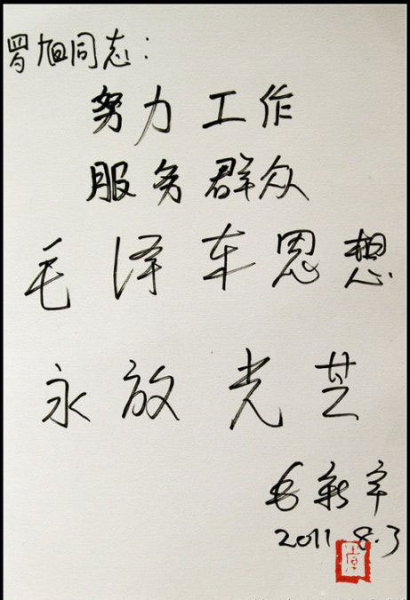 罗旭同志：
努力工作
服务群众
毛泽东思想
永放光芒
毛新宇
2011.8.3